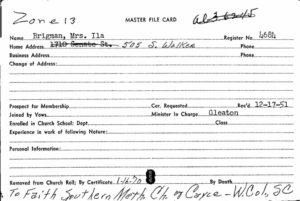 Zone 13 MASTER FILE CARD al 3 63 45
Name Brigman, Mrs. Ila Register No. 4684
Home Address 1710 Senate St. 505 S. Walker Phone
Business Address Phone
Change of Address:
Prospect for Membership Cer. Requested Rec'd 12-17-51
Joined by Vows Minister in Charge Gleaton
Enrolled in Church School: Dept. Class
Experience in work of following Nature:
Personal Information:
Removed from Church Roll; By Certificate 1-16-70 By Death
To Faith Southern Meth. Ch. of Cayce - W. Col, SC